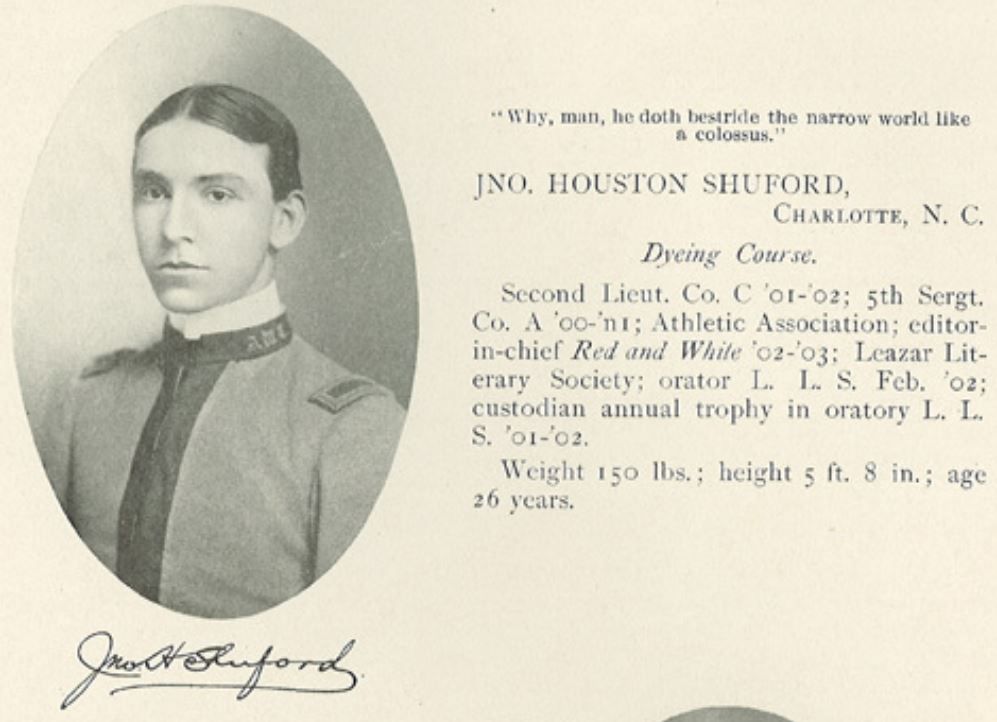 "Why, man, he doth bestride the narrow world like
a colossus."
JNO. HOUSTON SHUFORD,
CHARLOTTE, N. C.
Dyeing Course.
Second Lieut. Co. C '01-'02; 5th Sergt.
Co. A '00-'n1; Athletic Association; editor-
in-chief Red and White '02-'03; Leazar Lit-
erary Society; orator L. L. S. Feb. '02;
custodian annual trophy in oratory L. L.
S. '01-'02.
Weight 150 lbs.; height 5 ft. 8 in.; age
26 years.
Jno H Shuford